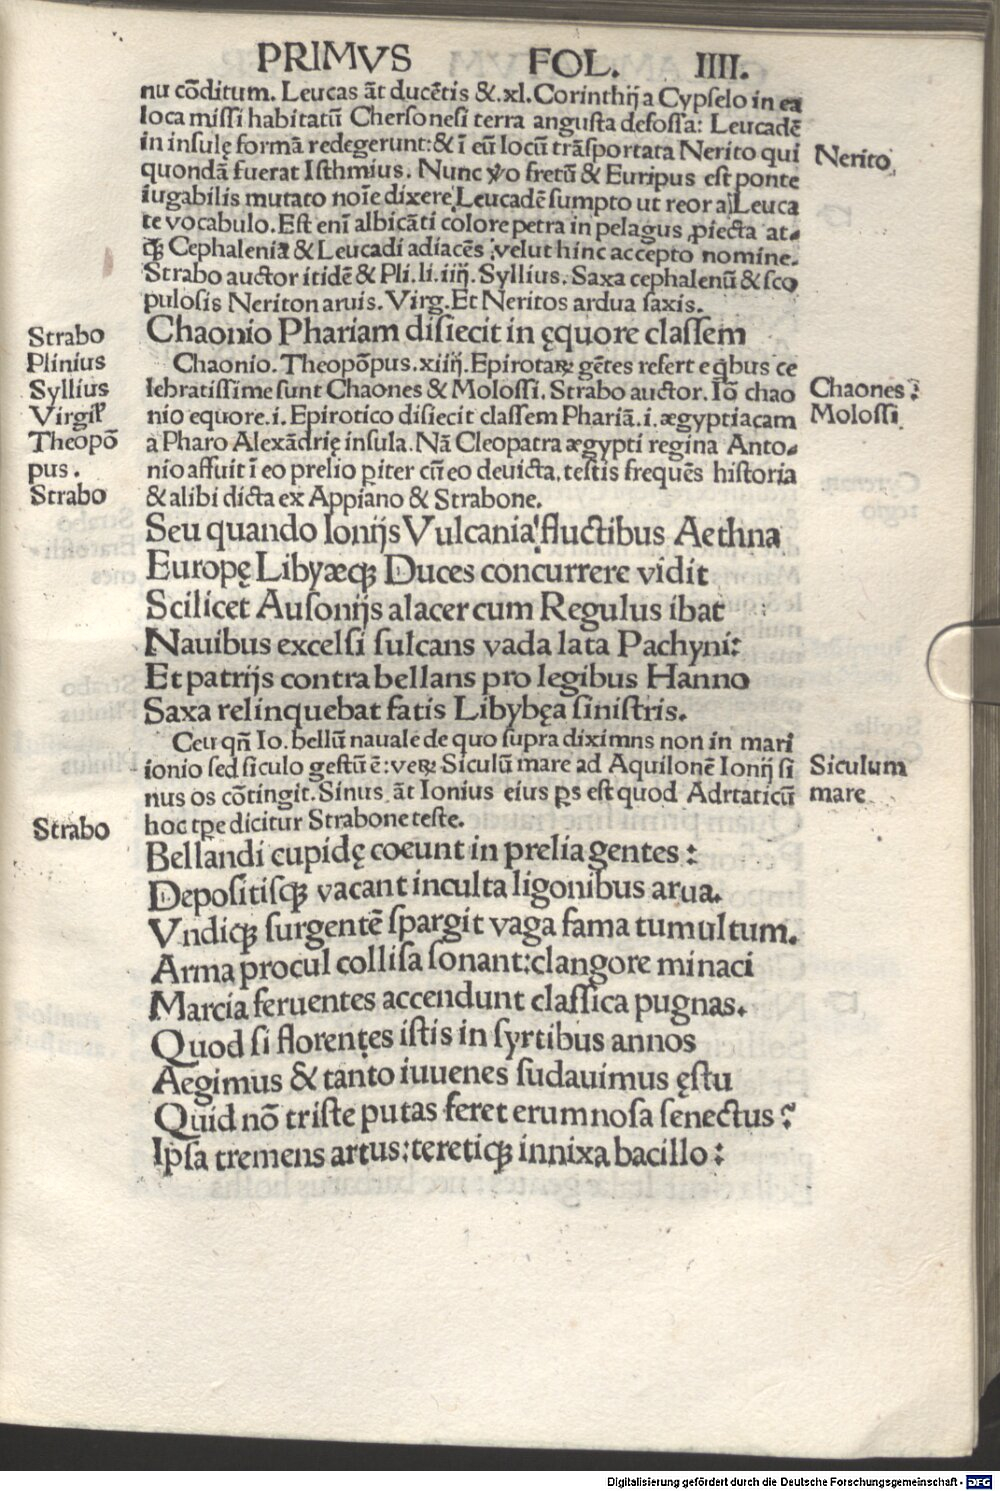 PRIMVS FOL. IIII.
nu cõditum. Leucas ãt ducẽtis &.xl. Corinthij a Cypſelo in ea
loca miſſi habitatũ Cherſoneſi terra anguſta defoſſa: Leucadẽ
in inſulę formã redegerunt:& ĩ eũ locũ trãſportata Nerito qui
Nerito
quondã fuerat Iſthmius. Nunc ꝟo fretũ & Euripus eſt ponte
iugabilis mutato noĩe dixere Leucadẽ ſumpto ut reor a Leuca
te vocabulo. Eſt enĩ albicãti colore petra in pelagus ꝓiecta at⸗
qꝫ Cephaleniã & Leucadi adiacẽs velut hinc accepto nomine.
Strabo auctor itidẽ & Pli. li. iiij. Syllius. Saxa cephalenũ & ſco
puloſis Neriton aruis. Virg. Et Neritos ardua ſaxis.
Strabo
Chaonio Phariam diſiecit in ęquore claſſem
Plinius
Chaonio. Theopõpus. xiiij. Epirotaꝝ gẽtes refert e qͥbus ce
Syllius
lebratiſſime ſunt Chaones & Moloſſi. Strabo auctor. Iõ chao
Chaones:
Virgil
nio equore .i. Epirotico diſiecit claſſem Phariã .i. ægyptiacam
Moloſſi
Theopõ
a Pharo Alexãdrię inſula. Nã Cleopatra ægypti regina Anto⸗
pus.
nio affuit ĩ eo prelio ꝑiter cũ eo deuicta, teſtis frequẽs hiſtoria
Strabo
& alibi dicta ex Appiano & Strabone.
Seu quando Ionijs Vulcania fluctibus Aethna
Europę Libyæqꝫ Duces concurrere vidit
Scilicet Auſonijs alacer cum Regulus ibat
Nauibus excelſi ſulcans vada lata Pachyni:
Et patrijs contra bellans pro legibus Hanno
Saxa relinquebat fatis Libybęa ſiniſtris.
Ceu qñ Io. bellũ nauale de quo ſupra diximns non in mari
ionio ſed ſiculo geſtũ ẽ: veꝝ Siculũ mare ad Aquilonẽ Ionij ſi
Siculum
nus os cõtingit. Sinus ãt Ionius eius ꝑs eſt quod Adrtaticũ
mare
Strabo
hoc tꝑe dicitur Strabone teſte.
Bellandi cupidę coeunt in prelia gentes:
Depoſitiſqꝫ vacant inculta ligonibus arua.
Vndiqꝫ ſurgentẽ ſpargit vaga fama tumultum.
Arma procul colliſa ſonant: clangore minaci
Marcia feruentes accendunt claſſica pugnas.
Quod ſi florentes iſtis in ſyrtibus annos
Aegimus & tanto iuuenes ſudauimus ęſtu
Quid nõ triſte putas feret erumnoſa ſenectus?
Ipſa tremens artus: teretiqꝫ innixa bacillo:
Digitalisierung gefördert durch die Deutsche Forschungsgemeinschaft - DFG